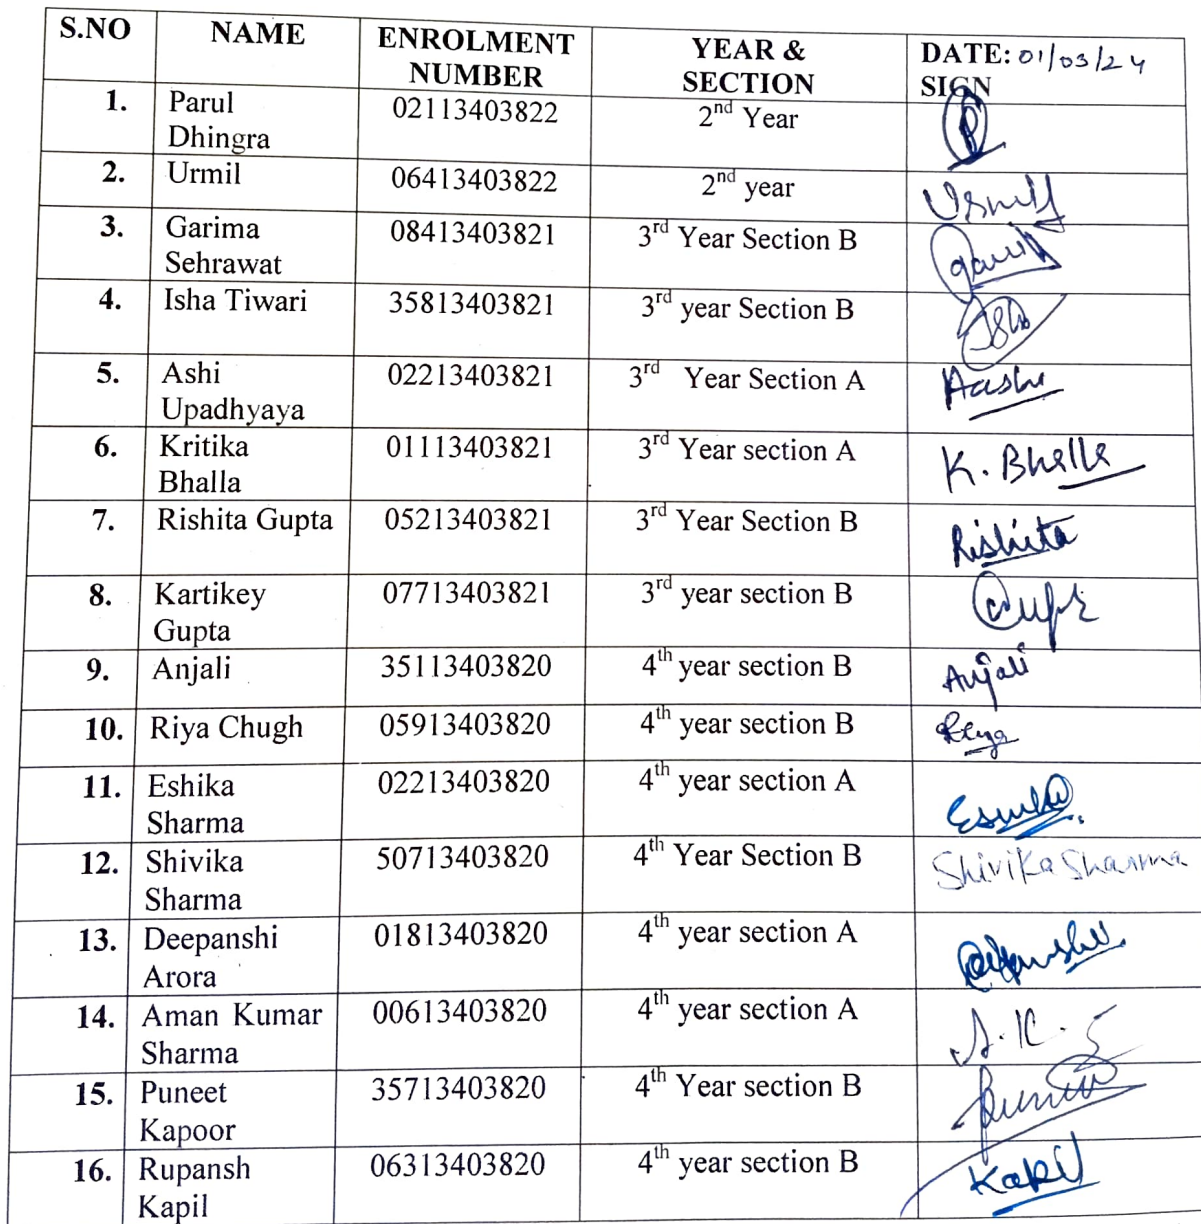 S.NO NAME ENROLMENT NUMBER YEAR & SECTION DATE: 01/03/24 SIGN
1. Parul Dhingra 02113403822 2nd Year
2. Urmil 06413403822 2nd year Urmil
3. Garima Sehrawat 08413403821 3rd Year Section B
4. Isha Tiwari 35813403821 3rd year Section B Isha
5. Ashi Upadhyaya 02213403821 3rd Year Section A Aashi
6. Kritika Bhalla 01113403821 3rd Year section A K. Bhalla
7. Rishita Gupta 05213403821 3rd Year Section B Rishita
8. Kartikey Gupta 07713403821 3rd year section B
9. Anjali 35113403820 4th year section B Anjali
10. Riya Chugh 05913403820 4th year section B Riya
11. Eshika Sharma 02213403820 4th year section A
12. Shivika Sharma 50713403820 4th Year Section B Shivika Sharma
13. Deepanshi Arora 01813403820 4th year section A
14. Aman Kumar Sharma 00613403820 4th year section A A.K.S
15. Puneet Kapoor 35713403820 4th Year section B
16. Rupansh Kapil 06313403820 4th year section B Kapil